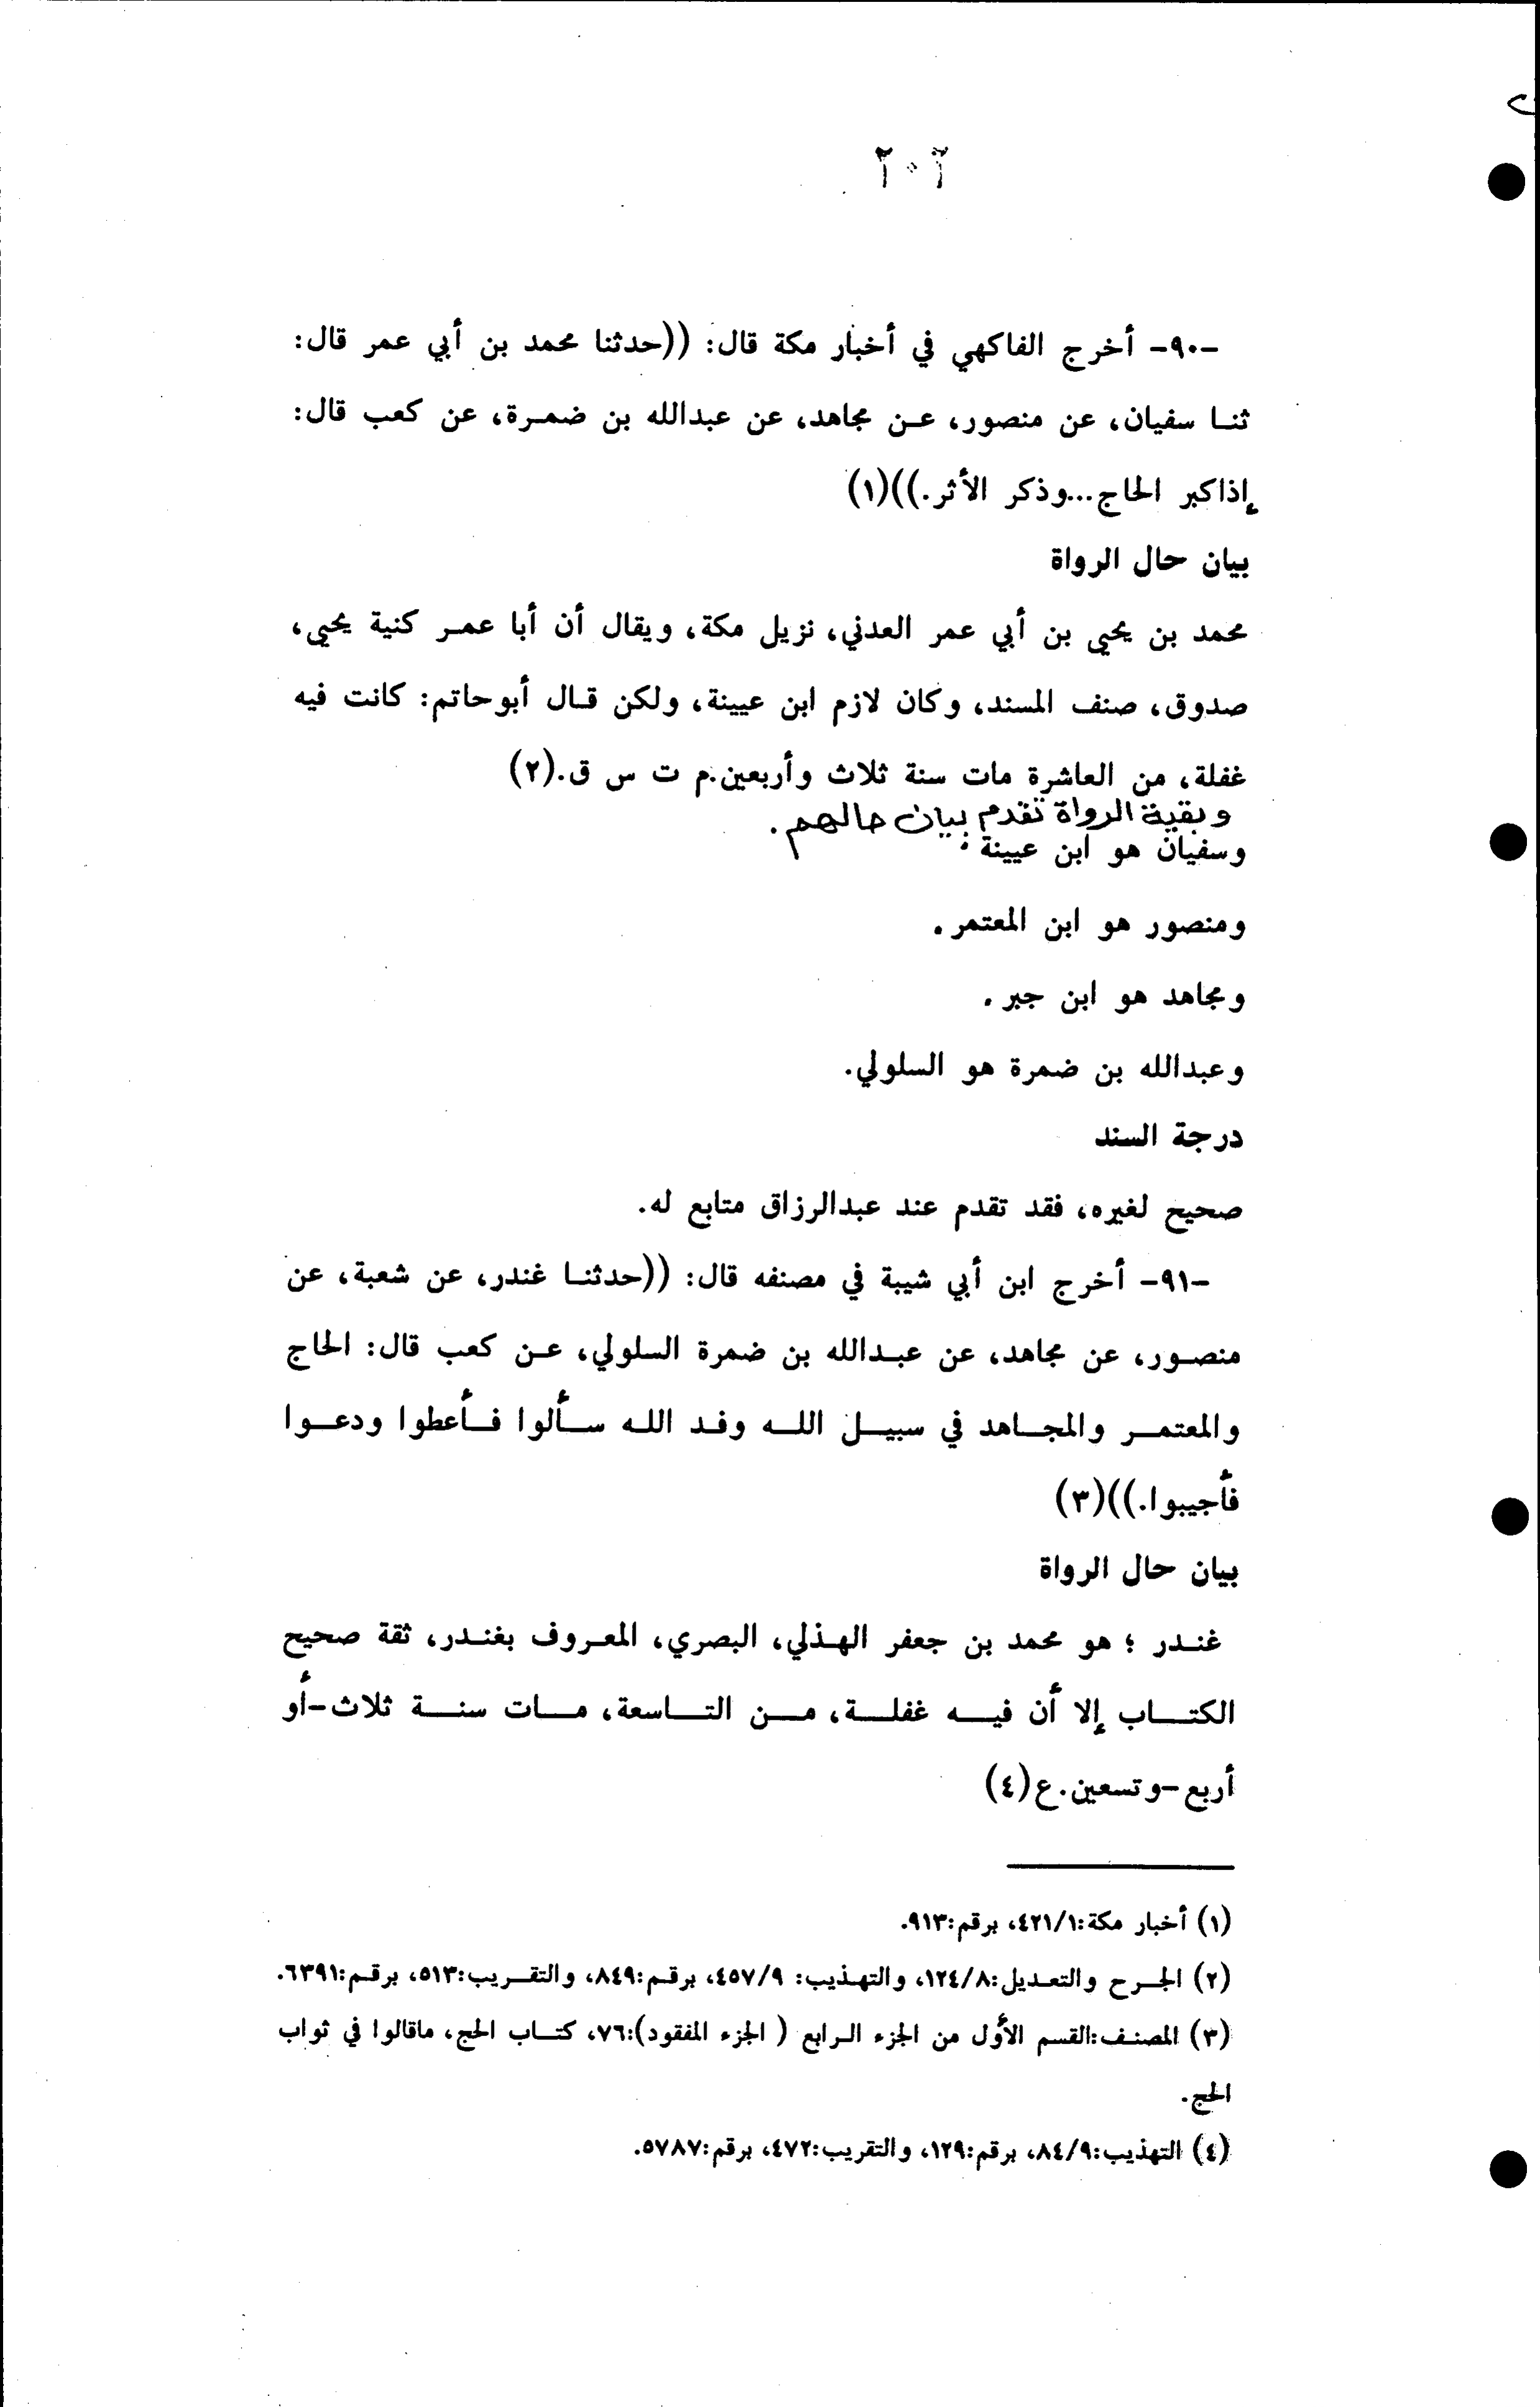 ٢٠٢
-٩٠- أخرج الفاكهي في أخبار مكة قال: ((حدثنا محمد بن أبي عمر قال:
ثنا سفيان، عن منصور، عن مجاهد، عن عبدالله بن ضمرة، عن كعب قال:
إذاكبر الحاج...وذكر الأثر.))(١)
بيان حال الرواة
محمد بن يحيى بن أبي عمر العدني، نزيل مكة، ويقال أن أبا عمر كنية يحيى،
صدوق، صنف المسند، وكان لازم ابن عيينة، ولكن قال أبوحاتم: كانت فيه
غفلة، من العاشرة مات سنة ثلاث وأربعين.م ت س ق.(٢)
وبقية الرواة تقدم بيان حالهم.
وسفيان هو ابن عيينة.
ومنصور هو ابن المعتمر.
ومجاهد هو ابن جبر.
وعبدالله بن ضمرة هو السلولي.
درجة السند
صحيح لغيره، فقد تقدم عند عبدالرزاق متابع له.
-٩١- أخرج ابن أبي شيبة في مصنفه قال: ((حدثنا غندر، عن شعبة، عن
منصور، عن مجاهد، عن عبدالله بن ضمرة السلولي، عن كعب قال: الحاج
والمعتمر والمجاهد في سبيل الله وفد الله سألوا فأعطوا ودعوا
فأجيبوا.))(٣)
بيان حال الرواة
غندر ؛ هو محمد بن جعفر الهذلي، البصري، المعروف بغندر، ثقة صحيح
الكتاب إلا أن فيه غفلة، من التاسعة، مات سنة ثلاث-أو
أربع-وتسعين.ع(٤)
(١) أخبار مكة:٤٢١/١، برقم:٩١٣.
(٢) الجرح والتعديل:١٢٤/٨، والتهذيب: ٤٥٧/٩، برقم:٨٤٩، والتقريب:٥١٣، برقم:٦٣٩١.
(٣) المصنف:القسم الأول من الجزء الرابع ( الجزء المفقود):٧٦، كتاب الحج، ماقالوا في ثواب
الحج.
(٤) التهذيب:٨٤/٩، برقم:١٢٩، والتقريب:٤٧٢، برقم:٥٧٨٧.